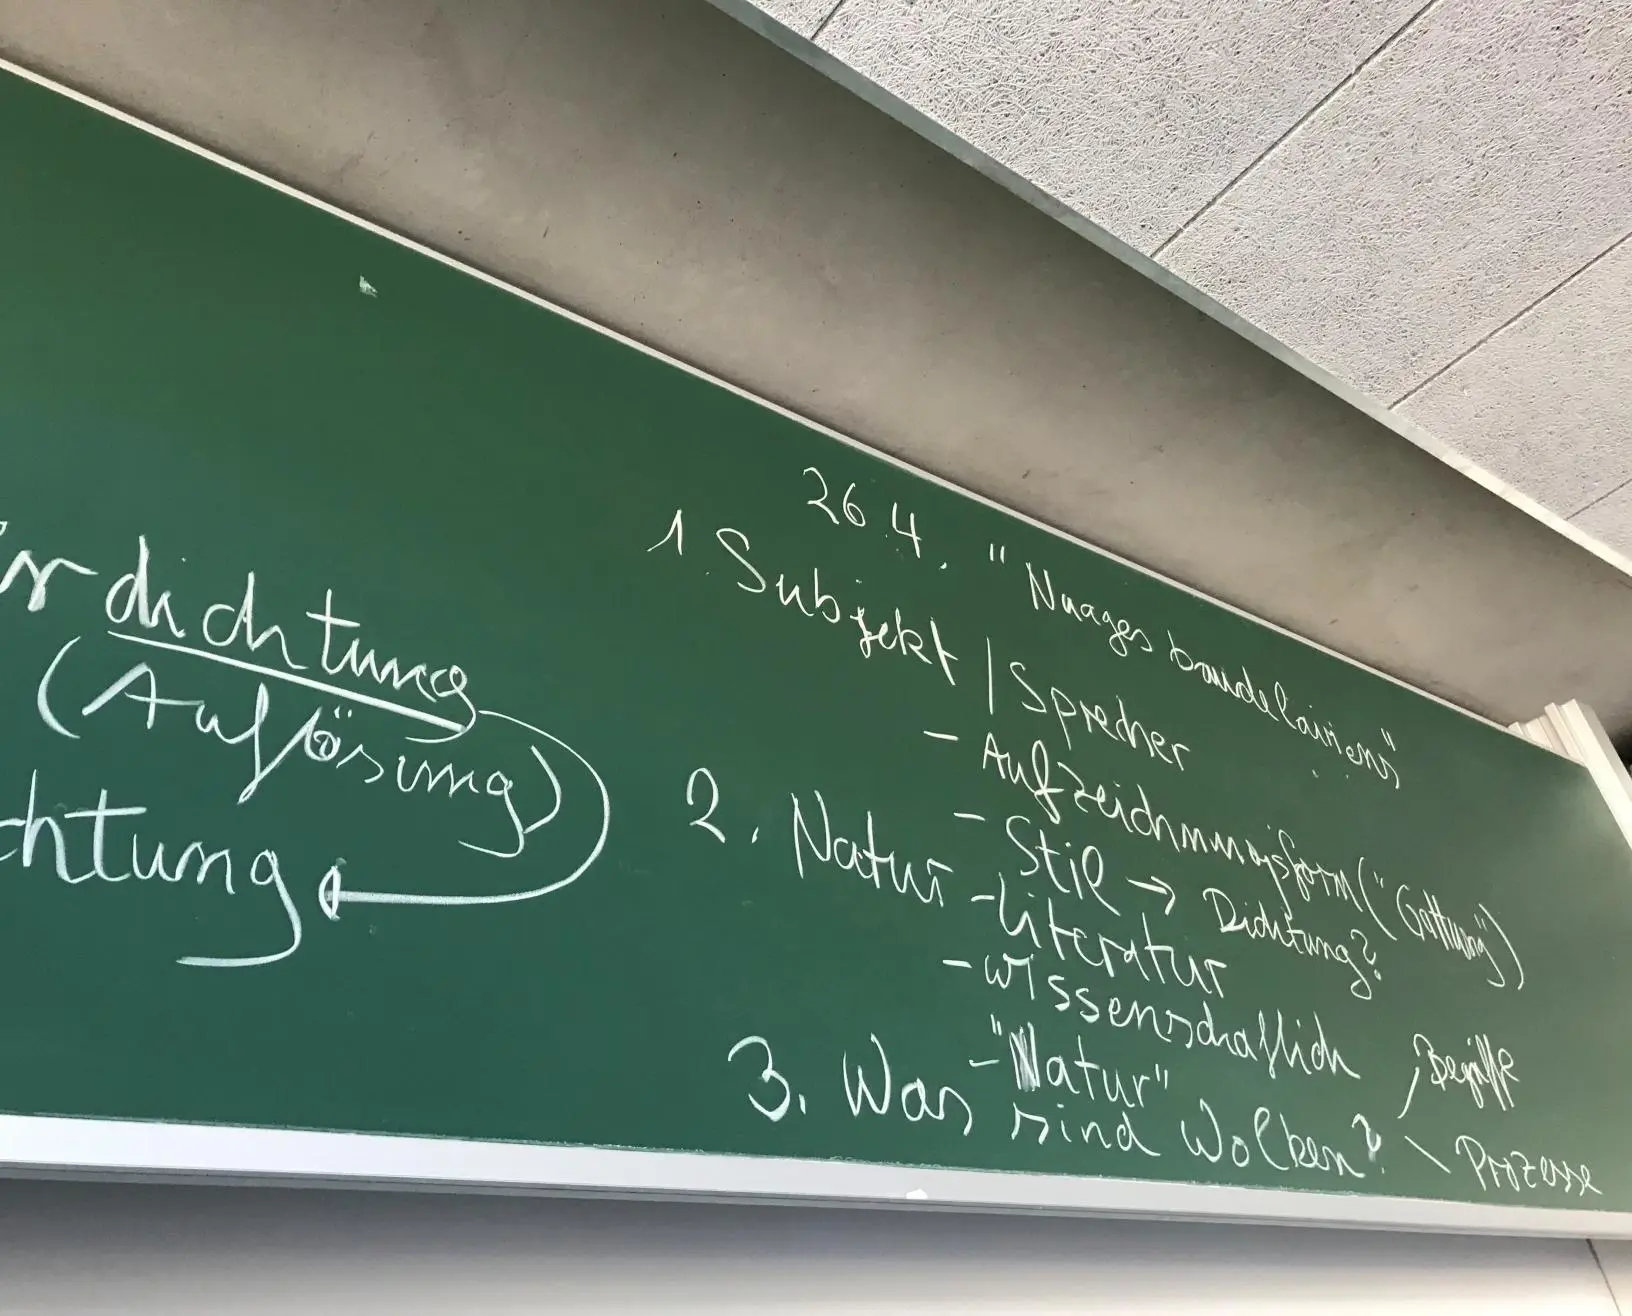 rdichtung
(Auflösung)
chtung
26.4. "Nuages baudelairiens"
1. Subjekt / Sprecher
- Aufzeichnungsform ("Gattung")
- Stil → Dichtung?
2. Natur - Literatur
- wissenschaftlich
- "Natur"
3. Was sind Wolken?
Begriffe
Prozesse